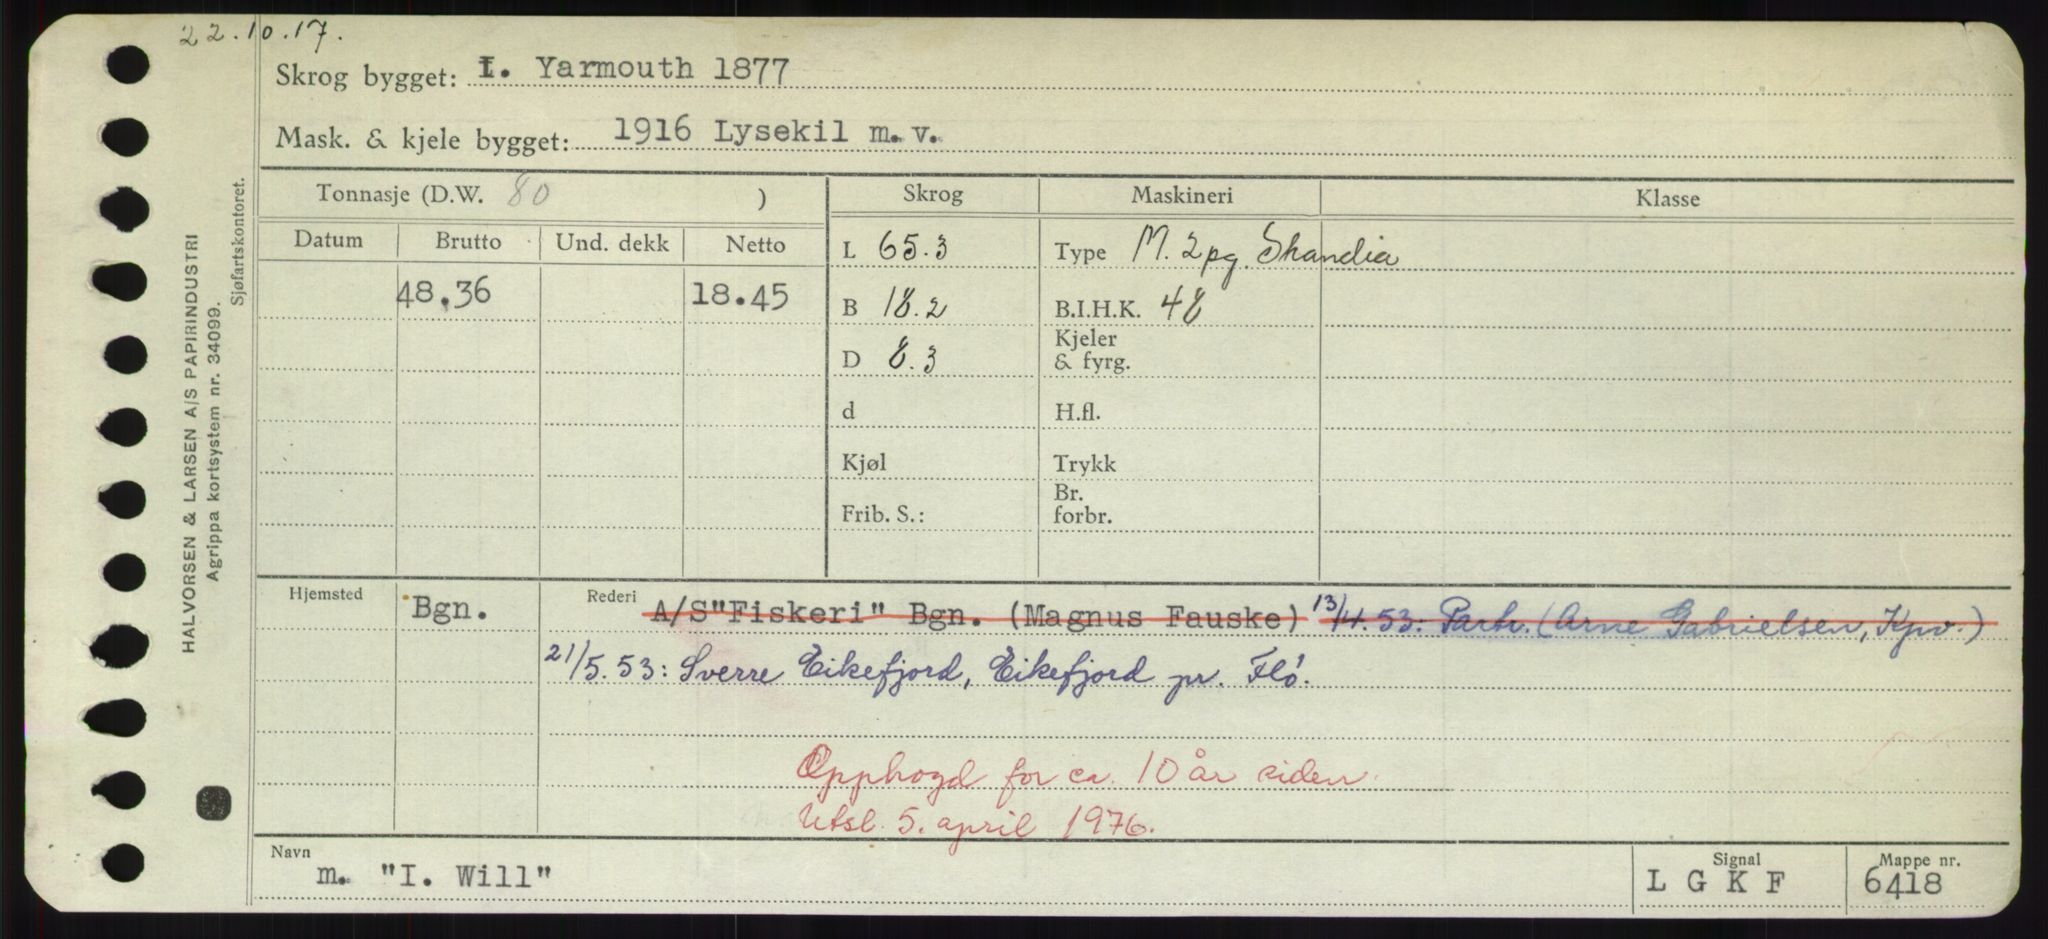 22.10.17.
Skrog bygget: I. Yarmouth 1877
Mask. & kjele bygget: 1916 Lysekil m.v.
HALVORSEN & LARSEN A/S PAPIRINDUSTRI
Agrippa kortsystem nr. 34099.
Sjøfartskontoret.
Tonnasje (D.W. 80 ) Skrog Maskineri Klasse
Datum Brutto Und. dekk Netto
L 65.3 Type M. 2pg. Skandia
48.36 18.45
B 18.2 B.I.H.K. 48
D 8.3 Kjeler & fyrg.
d H.fl.
Kjøl Trykk
Frib. S.: Br. forbr.
Hjemsted Bgn. Rederi A/S"Fiskeri" Bgn. (Magnus Fauske) 13/4.53: Partr. (Arne Gabrielsen, Kpv.)
21/5.53: Sverre Eikefjord, Eikefjord pr. Fló.
Opphogd for ca. 10 år siden.
Utsl. 5. april 1976.
Navn m. "I. Will" Signal L G K F Mappe nr. 6418